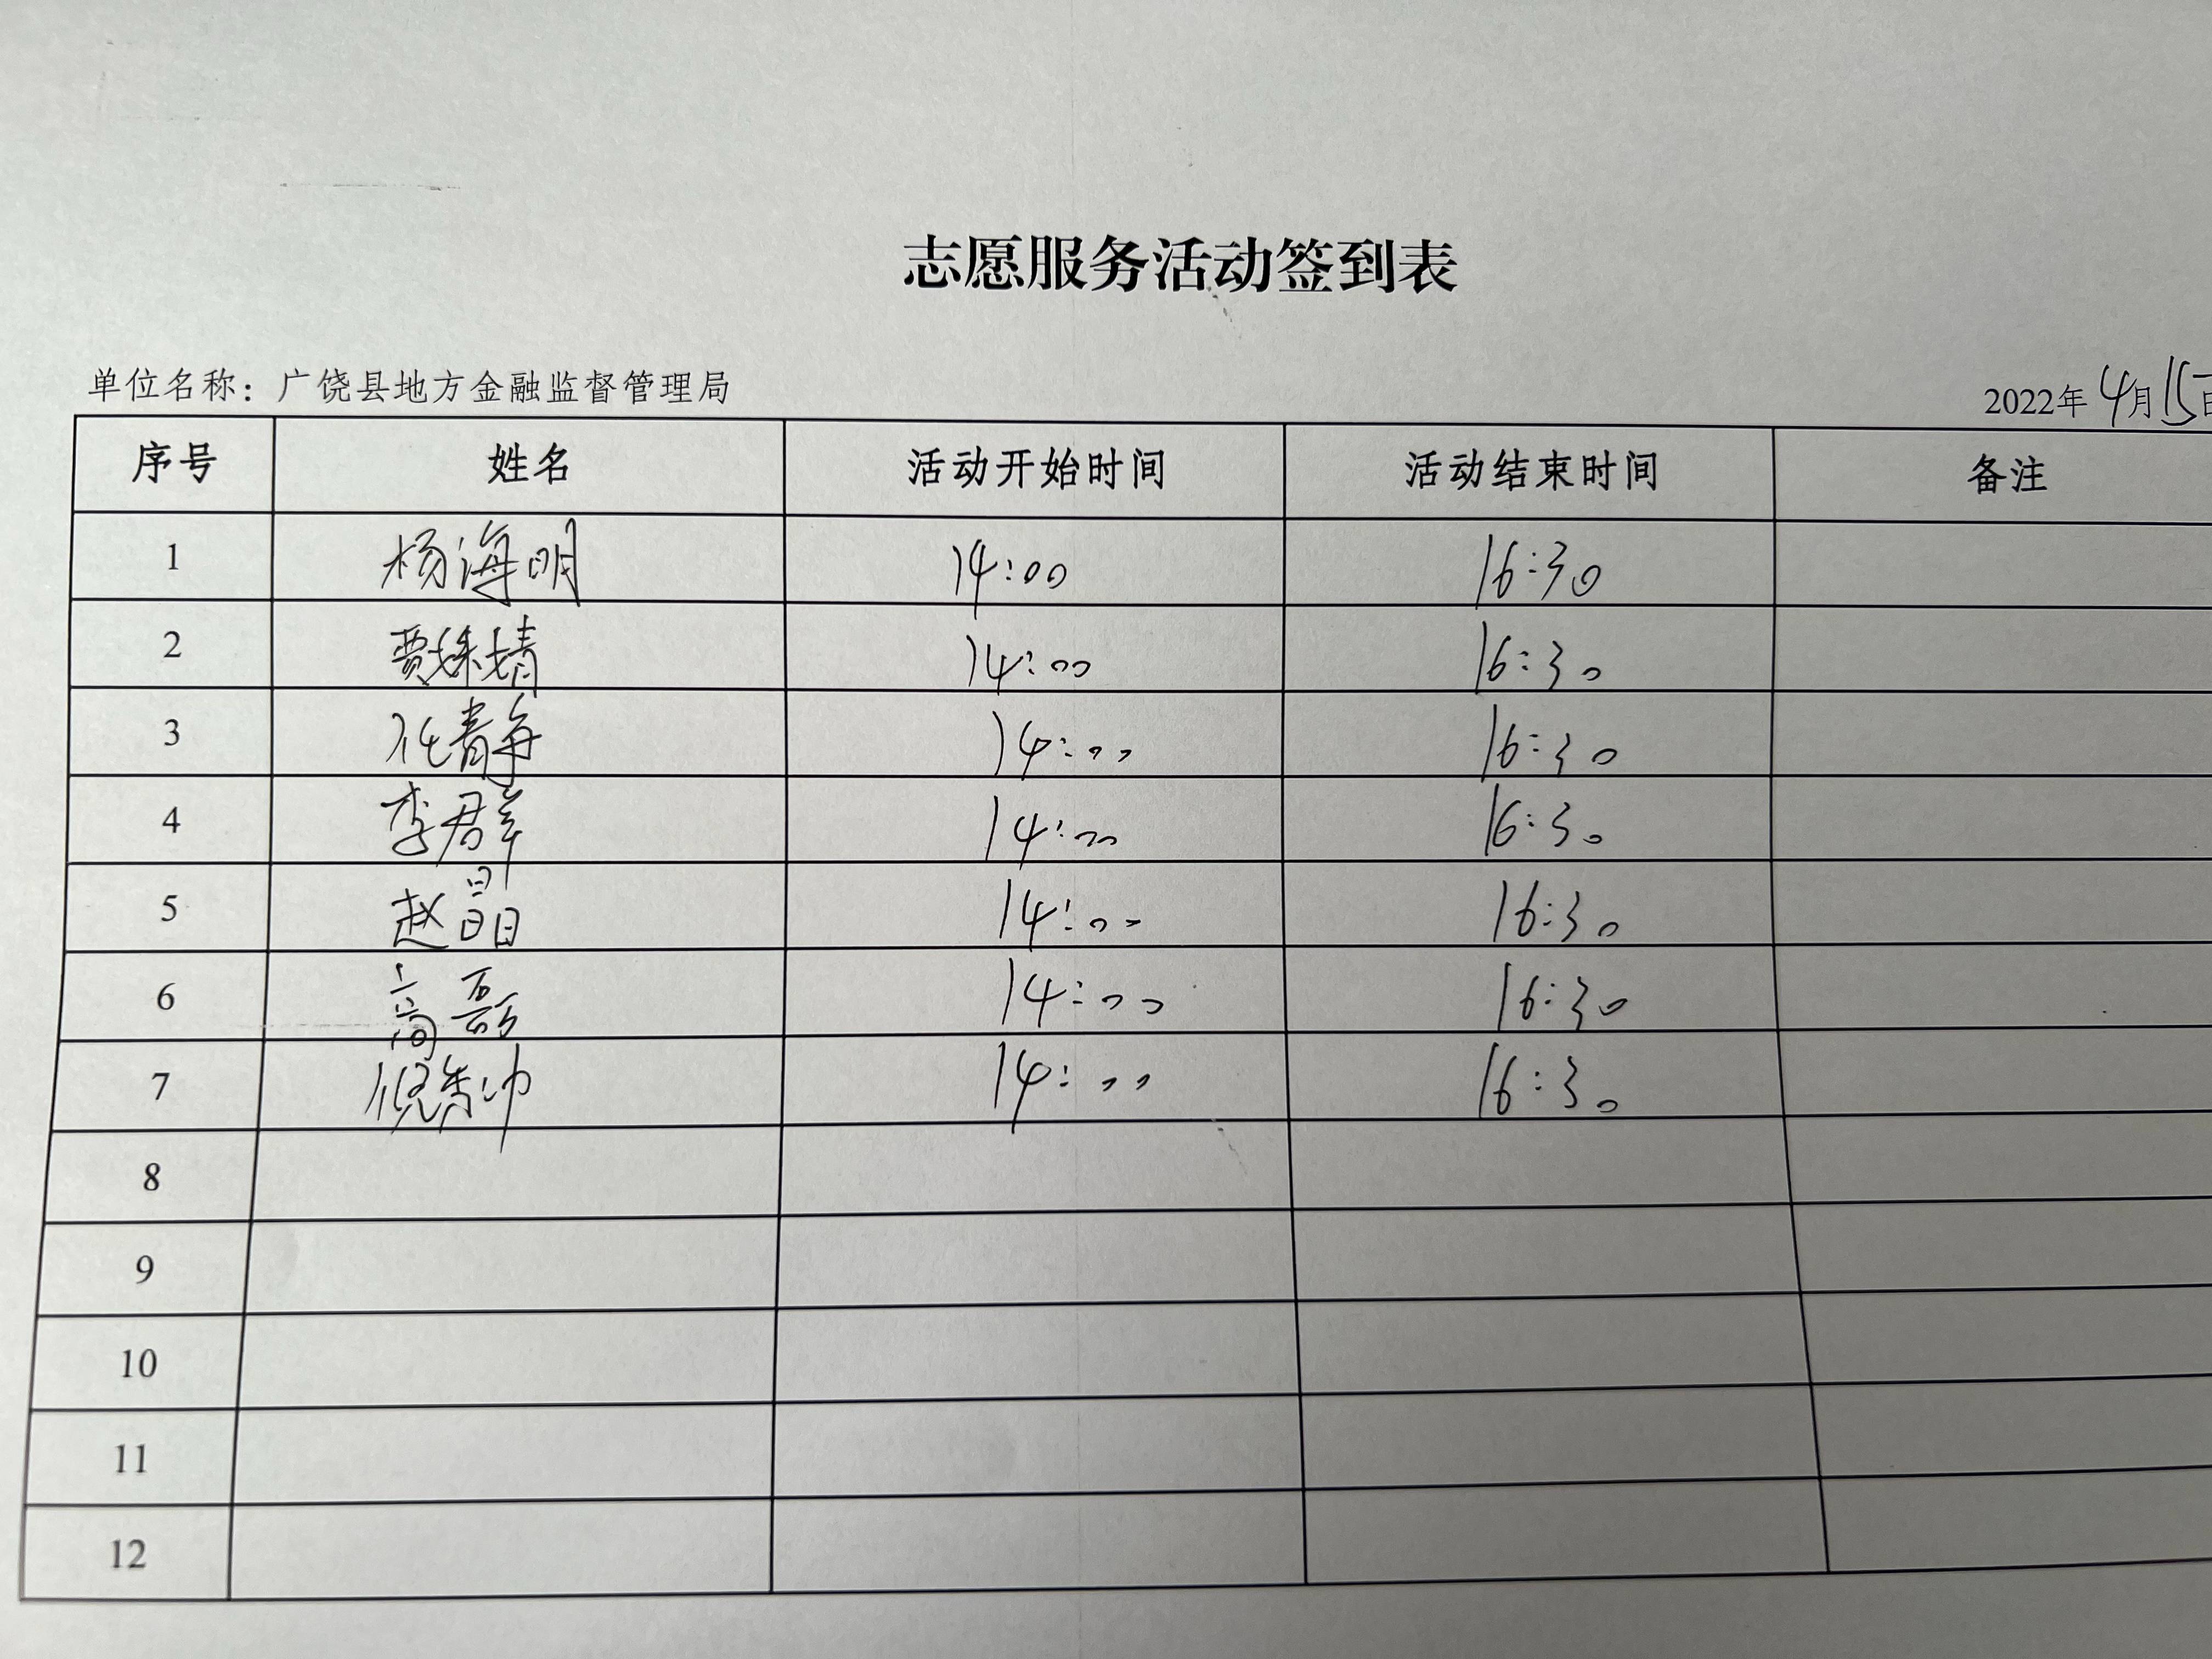 志愿服务活动签到表
单位名称：广饶县地方金融监督管理局 2022年4月15日
序号 姓名 活动开始时间 活动结束时间 备注
1 杨海明 14:00 16:30
2 贾姝婧 14:00 16:30
3 任静 14:00 16:30
4 李群 14:00 16:30
5 赵晶 14:00 16:30
6 高磊 14:00 16:30
7 14:00 16:30
8
9
10
11
12